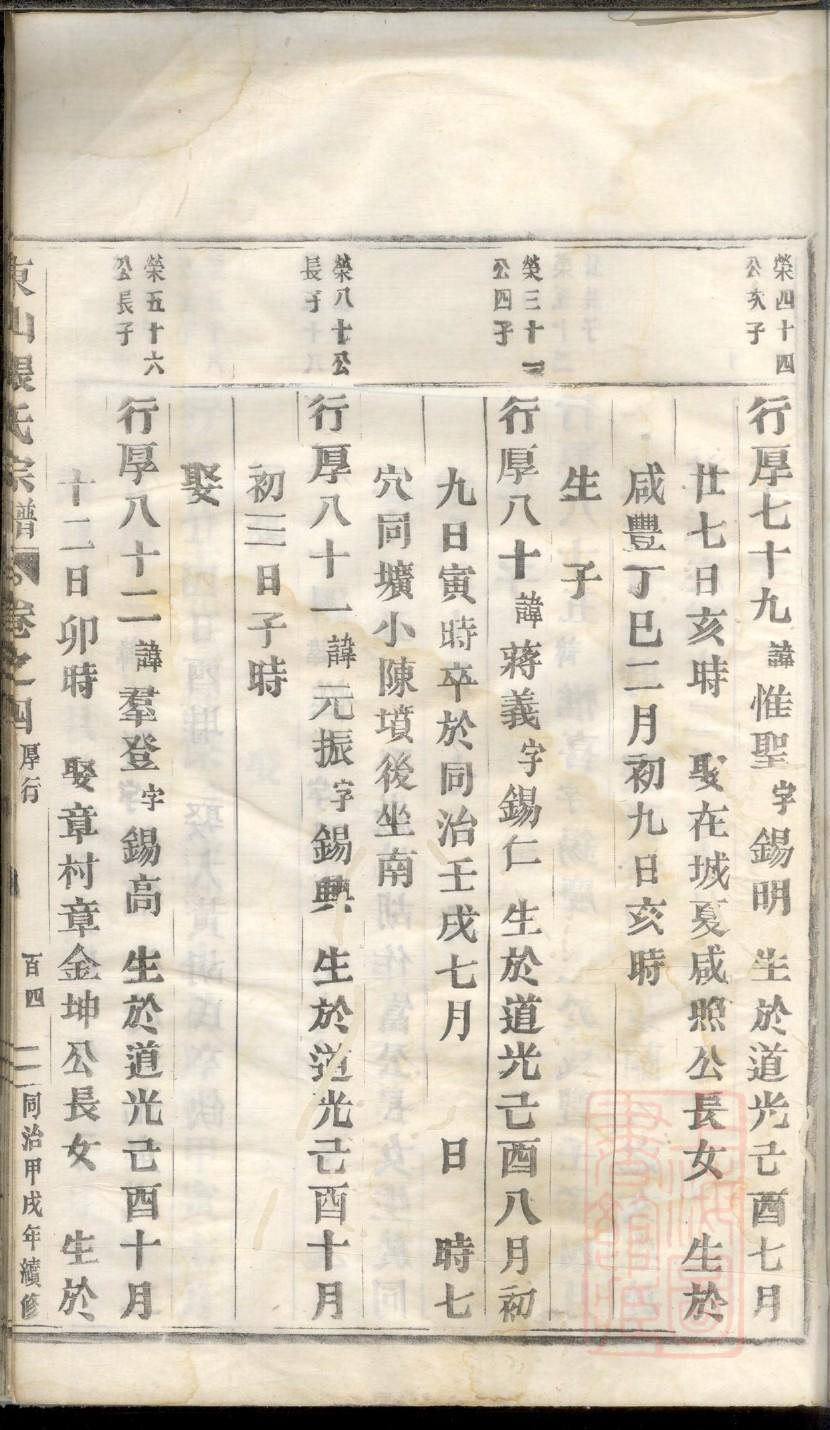 榮四十四
公次子
行厚七十九諱惟聖字錫明 生於道光己酉七月
廿七日亥時 娶在城夏咸照公長女 生於
咸豐丁巳二月初九日亥時
生 子
榮三十一
公四子
行厚八十諱蔣義字錫仁 生於道光己酉八月初
九日寅時卒於同治壬戌七月 日 時七
穴同壙小陳墳後坐南
榮八十公
長子
行厚八十一諱元振字錫興 生於道光己酉十月
初三日子時
娶
榮五十六
公長子
行厚八十二諱羣登字錫高 生於道光己酉十月
十二日卯時 娶章村章金坤公長女 生於
東山張氏宗譜 卷之四 厚行 百四 同治甲戌年續修